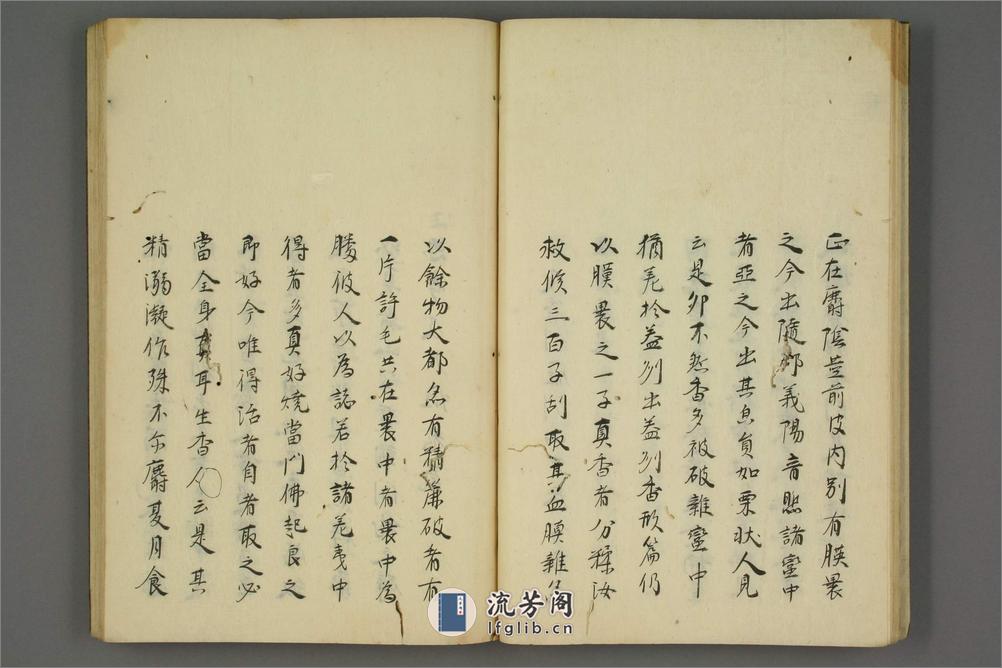 正在麝陰莖前皮内別有膜畏
之今出隨郷義陽音熙諸蛮中
者亞之今出其皀負如栗状人見
云是卯不然香多被破雜蛮中
猶羌扵益州出益州香形篇仍
以膜畏之一子真香者分糅汝
救候三百子刮取其血膜雜
以餘物大都名有精廉破者有
一片許毛共在畏中者畏中為
勝彼人以為誌若扵諸羌夷中
得者多真好燒當門佛起良之
即好今唯得活者自者取之必
當全身真耳生香人云是其
精溺凝作殊不尓麝夏月食
流芳阁
lfglib.cn